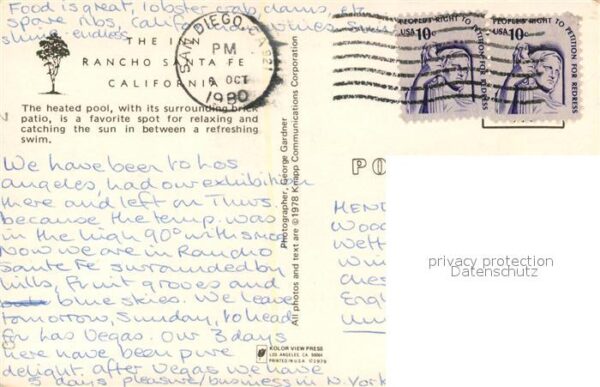 Food is great, lobster crab, clams, etc
spare ribs,
THE INN
RANCHO SANTA FE
CALIFORNIA
SAN DIEGO, CA 921
PM
OCT
1980
PEOPLE'S RIGHT TO PETITION FOR REDRESS
USA 10c
PEOPLE'S RIGHT TO PETITION FOR REDRESS
USA 10c
The heated pool, with its surrounding brick
patio, is a favorite spot for relaxing and
catching the sun in between a refreshing
swim.
We have been to Los
Angeles, had our exhibition
there and left on Thurs.
because the temp. was
in the high 90° with smog
Now we are in Rancho
Sante Fe surrounded by
hills, fruit groves and
blue skies. We leave
tomorrow, Sunday, to head
for Las Vegas. Our 3 days
here have been pure
delight. After Vegas we have
5 days pleasure/business in N. York
Photographer, George Gardner
All photos and text are ©1978 Knapp Communications Corporation
PO
privacy protection
Datenschutz
KOLOR VIEW PRESS
LOS ANGELES, CA. 90061
PRINTED IN U.S.A. ©1979